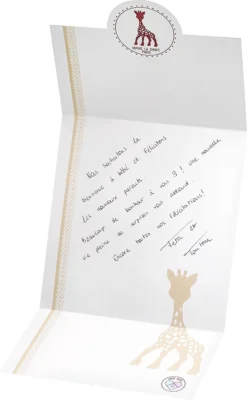 SOPHIE LA GIRAFE
PARIS
Nous souhaitons la
bienvenue à bébé et félicitons
les nouveaux parents.
Beaucoup de bonheur à vous 3 ! Une nouvelle
vie pleine de surprises vous attend.
Encore toutes nos félicitations !
et